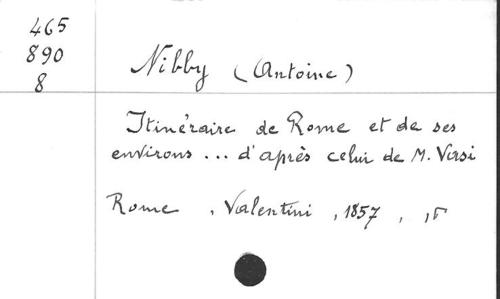 465
890
8
Nibby (Antoine)
Itinéraire de Rome et de ses
environs ... d'après celui de M. Vasi
Rome , Valentini , 1857 , ,